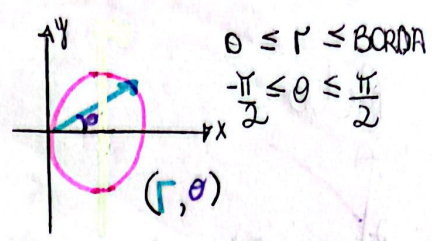 y
0 ≤ r ≤ BORDA
-π/2 ≤ θ ≤ π/2
θ
x
(r, θ)